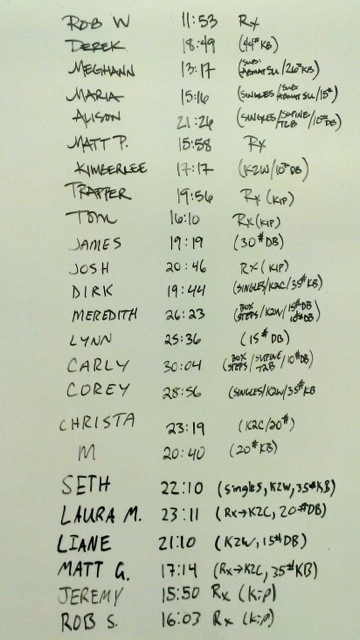 ROB W 11:53 Rx
DEREK 18:49 (44# KB)
MEGHANN 13:17 (SUB: ABMAT SU/26# KB)
MARIA 15:16 (SINGLES/SUB: ABMAT SU/15#)
ALISON 21:26 (SINGLES/SUPINE T2B/10# DB)
MATT P. 15:58 Rx
KIMBERLEE 17:17 (K2W/10# DB)
TRAPPER 19:56 Rx (KIP)
TOM 16:10 Rx (KIP)
JAMES 19:19 (30# DB)
JOSH 20:46 Rx (KIP)
DIRK 19:44 (SINGLES/K2C/35# KB)
MEREDITH 26:23 (BOX STEPS/K2W/15# DB 10# DB)
LYNN 25:36 (15# DB)
CARLY 30:04 (BOX STEPS/SUPINE T2B/10# DB)
COREY 28:56 (SINGLES/K2W/35# KB
CHRISTA 23:19 (K2C/20#)
M 20:40 (20# KB)
SETH 22:10 (singles, K2W, 35# KB)
LAURA M. 23:11 (Rx→K2C, 20# DB)
LIANE 21:10 (K2W, 15# DB)
MATT G. 17:14 (Rx→K2C, 35# KB)
JEREMY 15:50 Rx (kip)
ROB S. 16:03 Rx (kip)